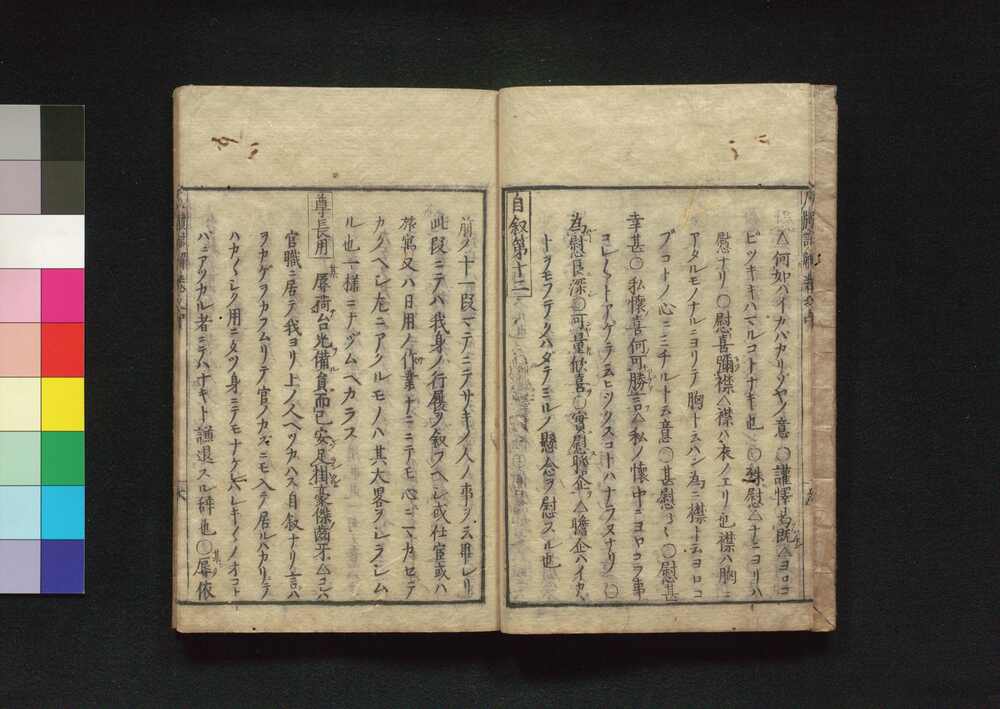 △何如ハイカバカリゾヤノ意〇讙懌曷既△ヨロコ
ビツキキハマルコトナキ也〇殊慰△コトニヨリハ
慰ナリ〇慰喜彌襟△襟ハ衣ノエリ也襟ハ胸ニ
アタルモノナルニヨリテ胸ト云ハン為ニ襟ト云ヨロコ
ブコトノ心ニミチルト云意〇甚慰〻〻〇慰甚
幸甚〇私懐喜何可勝言△私ノ懐中ニヨヤコフ事
コレ〳〵トアゲテ云ヒツクスコトハナラヌナリ〇
為慰良深〇可量欣喜〇實慰瞻企△瞻企ハイカヾ
トヲモフテクハダテミルノ懸念ヲ慰スル也
自叙第十二
前ノ十一段マデニテサキノ人ノ事ヲ云畢レリ
此段ニテハ我身ノ行履ヲ叙フヘシ或仕官或ハ
旅寓又ハ日用ノ作業ナニニテモ心ニマカセテ
カクヘシ左ニアグルモノハ其大畧ヲシラシム
ル也一様ニナヅムヘカラス
尊長用 辱荷台光備員而已安足掛豪傑齒牙△コレハ
官職ニ居テ我ヨリ上ノ人ヘツカハス自叙ナリ言ハ
ヲカゲヲカフムリテ官ノカズニモ入テ居ルバカリテ
ハカ〳〵シク用ニタツ身ニテモナケレハレキ〳〵ノオコト
バニアツカル者ニテハナキト謙退スル辞也〇辱依